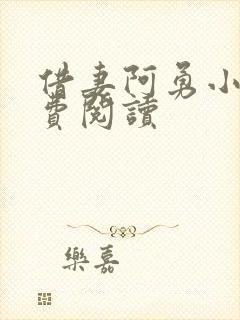 借妻阿勇小
費閱讀
樂嘉